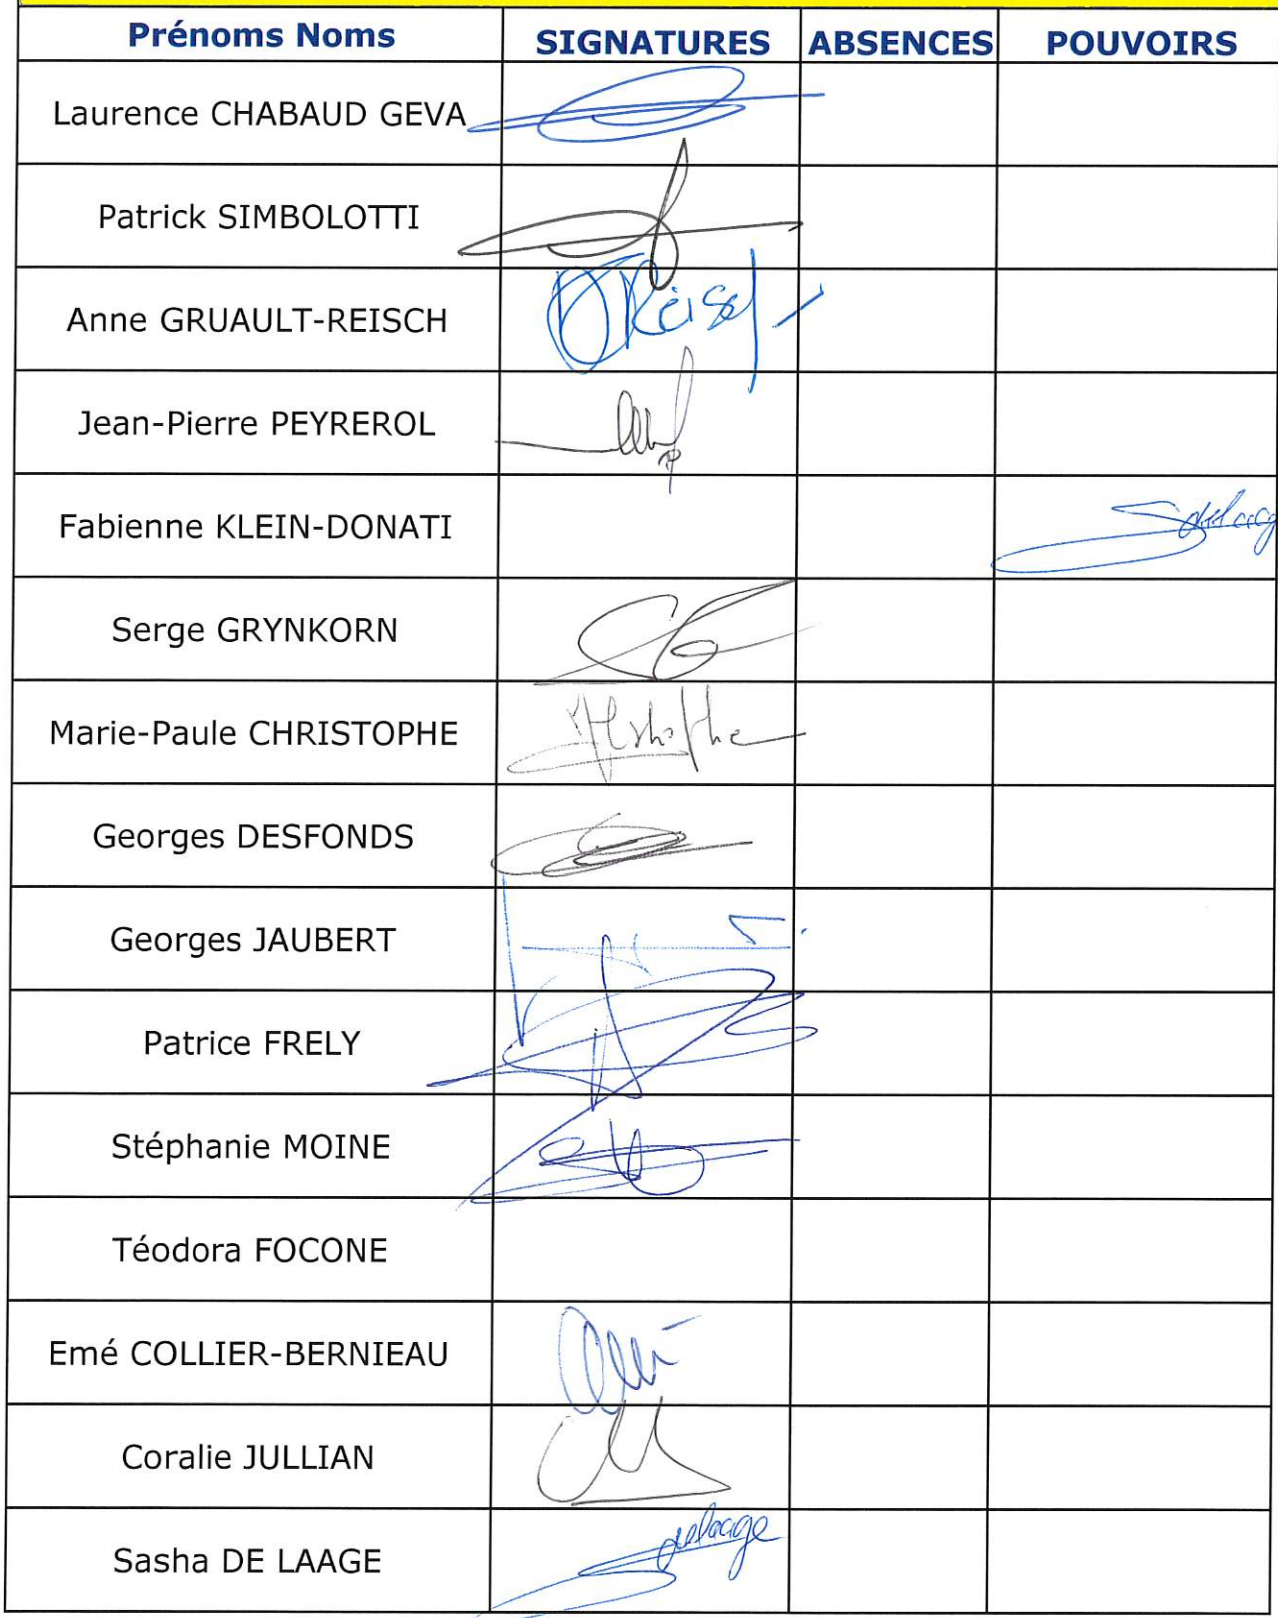 Prénoms Noms SIGNATURES ABSENCES POUVOIRS
Laurence CHABAUD GEVA
Patrick SIMBOLOTTI
Anne GRUAULT-REISCH
Jean-Pierre PEYREROL
Fabienne KLEIN-DONATI
Serge GRYNKORN
Marie-Paule CHRISTOPHE
Georges DESFONDS
Georges JAUBERT
Patrice FRELY
Stéphanie MOINE
Téodora FOCONE
Emé COLLIER-BERNIEAU
Coralie JULLIAN
Sasha DE LAAGE